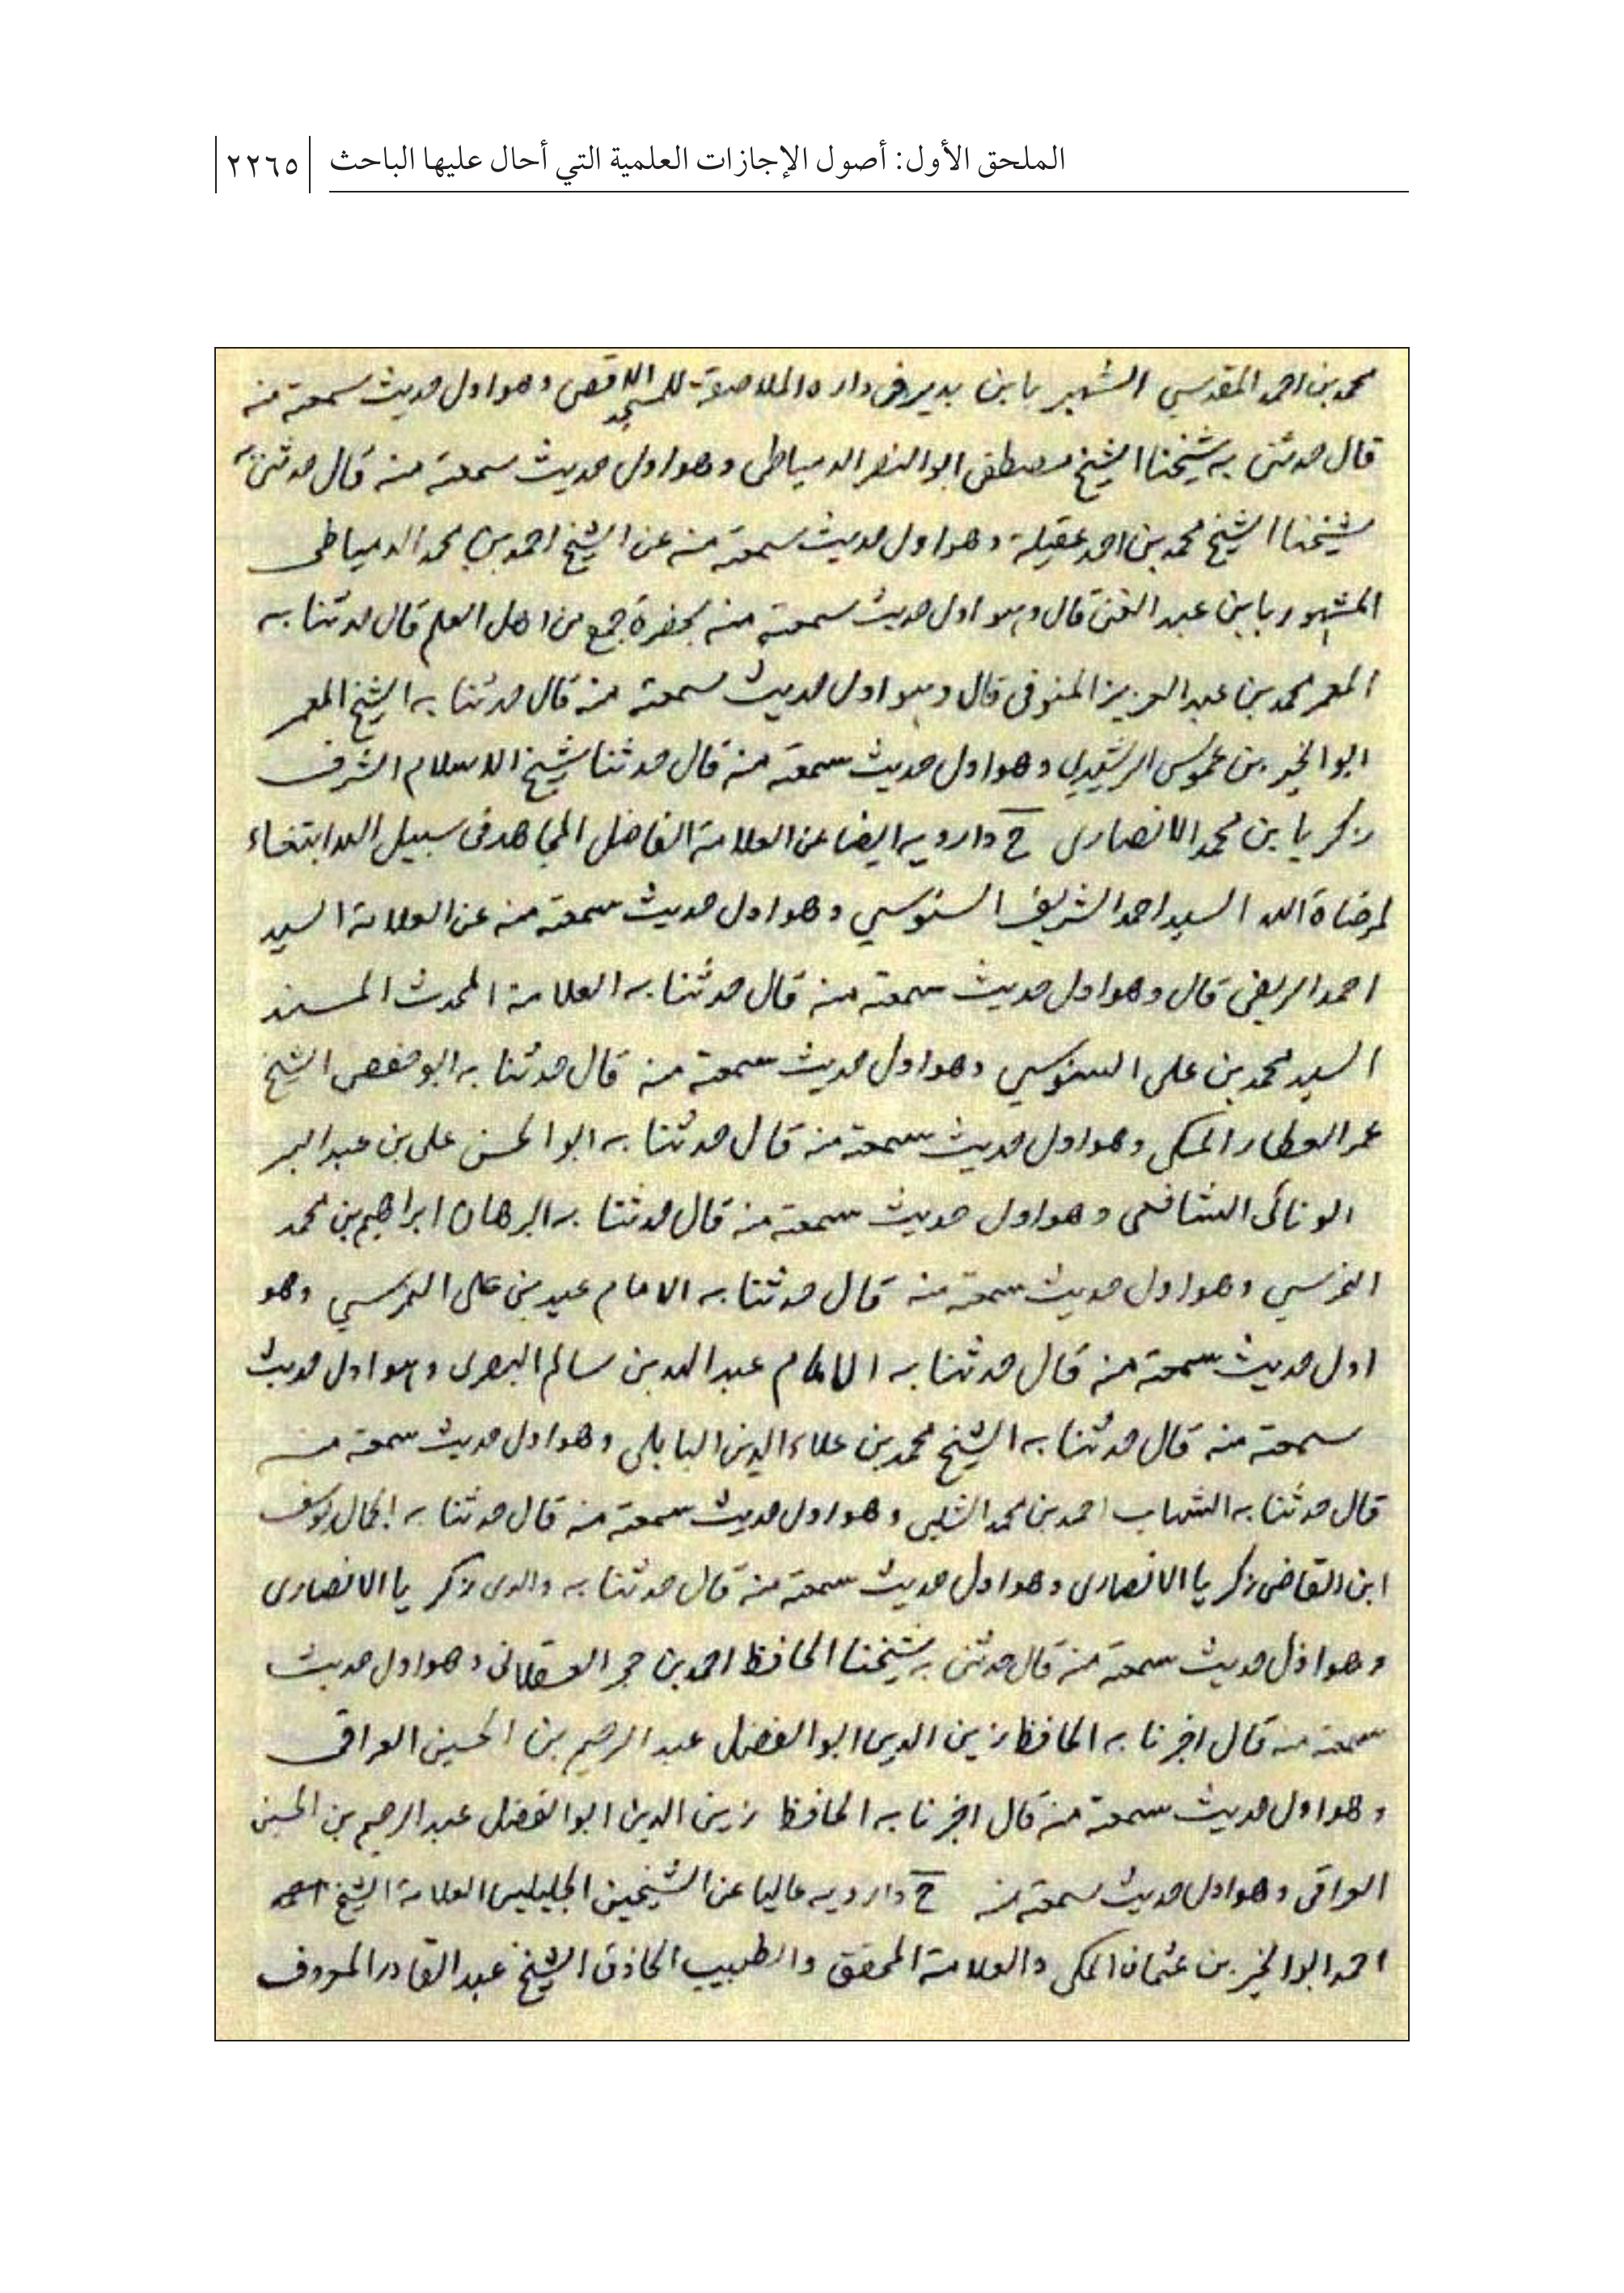 الملحق الأول: أصول الإجازات العلمية التي أحال عليها الباحث ٢٢٦٥
محمد بن احمد المقدسي الشهير بابن بدير في داره الملاصقة للمسجد الاقصى وهو اول حديث سمعته منه
قال حدثني به شيخنا الشيخ مصطفى ابو النصر الدمياطى وهو اول حديث سمعته منه قال حدثني به
شيخنا الشيخ محمد بن احمد عقيلة وهو اول حديث سمعته منه عن الشيخ احمد بن محمد الدمياطى
المشهور بابن عبد الغنى قال وهو اول حديث سمعته منه بحضرة جمع من اهل العلم قال حدثنا به
المعمر محمد بن عبد العزيز المنوفى قال وهو اول حديث سمعته منه قال حدثنا به الشيخ المعمر
ابو الخير بن عموس الرشيدي وهو اول حديث سمعته منه قال حدثنا شيخ الاسلام الشرف
زكريا بن محمد الانصارى ح وارويه ايضا عن العلامة الفاضل المجاهد فى سبيل الله ابتغاء
لمرضاة الله السيد احمد الشريف السنوسي وهو اول حديث سمعته منه عن العلامة السيد
احمد الريفى قال وهو اول حديث سمعته منه قال حدثنا به العلامة المحدث المسند
السيد محمد بن على السنوسي وهو اول حديث سمعته منه قال حدثنا به ابو حفص الشيخ
عمر العطار المكى وهو اول حديث سمعته منه قال حدثنا به ابو الحسن على بن عبد البر
الونائى الشافعى وهو اول حديث سمعته منه قال حدثنا به البرهان ابراهيم بن محمد
النمرسي وهو اول حديث سمعته منه قال حدثنا به الامام عيد بن على النمرسي وهو
اول حديث سمعته منه قال حدثنا به الامام عبد الله بن سالم البصرى وهو اول حديث
سمعته منه قال حدثنا به الشيخ محمد بن علاء الدين البابلى وهو اول حديث سمعته منه
قال حدثنا به الشهاب احمد بن محمد الشلبى وهو اول حديث سمعته منه قال حدثنا به الجمال يوسف
ابن القاضى زكريا الانصارى وهو اول حديث سمعته منه قال حدثنا به والدى زكريا الانصارى
وهو اول حديث سمعته منه قال حدثنى به شيخنا الحافظ احمد بن حجر العسقلانى وهو اول حديث
سمعته منه قال اخبرنا به الحافظ زين الدين ابو الفضل عبد الرحيم بن الحسين العراقى
وهو اول حديث سمعته منه قال اخبرنا به الحافظ زين الدين ابو الفضل عبد الرحيم بن الحسين
العراقى وهو اول حديث سمعته منه ح وارويه عاليا عن الشيخين الجليلين العلامة الشيخ
احمد ابو الخير بن عثمان المكى والعلامة المحقق والطبيب الحاذق الشيخ عبد القادر المعروف